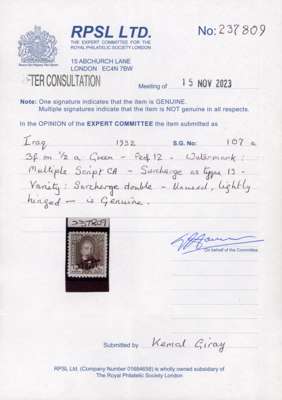 RPSL LTD.
THE EXPERT COMMITTEE FOR THE
ROYAL PHILATELIC SOCIETY LONDON
No: 237809
15 ABCHURCH LANE
LONDON EC4N 7BW
TER CONSULTATION
Meeting of 15 NOV 2023
Note: One signature indicates that the item is GENUINE.
Multiple signatures indicate that the item is NOT genuine in all respects.
In the OPINION of the EXPERT COMMITTEE the item submitted as
Iraq 1932 S.G. No: 107 a
3f. on ½ a Green - Perf 12 - Watermark:
Multiple Script CA - Surcharge as type 13 -
Variety: Surcharge double - Unused, lightly
hinged - is Genuine.
237809
On behalf of the Committee
Submitted by Kemal Giray
RPSL LTD. (Company Number 01684658) is wholly owned subsidiary of
The Royal Philatelic Society London